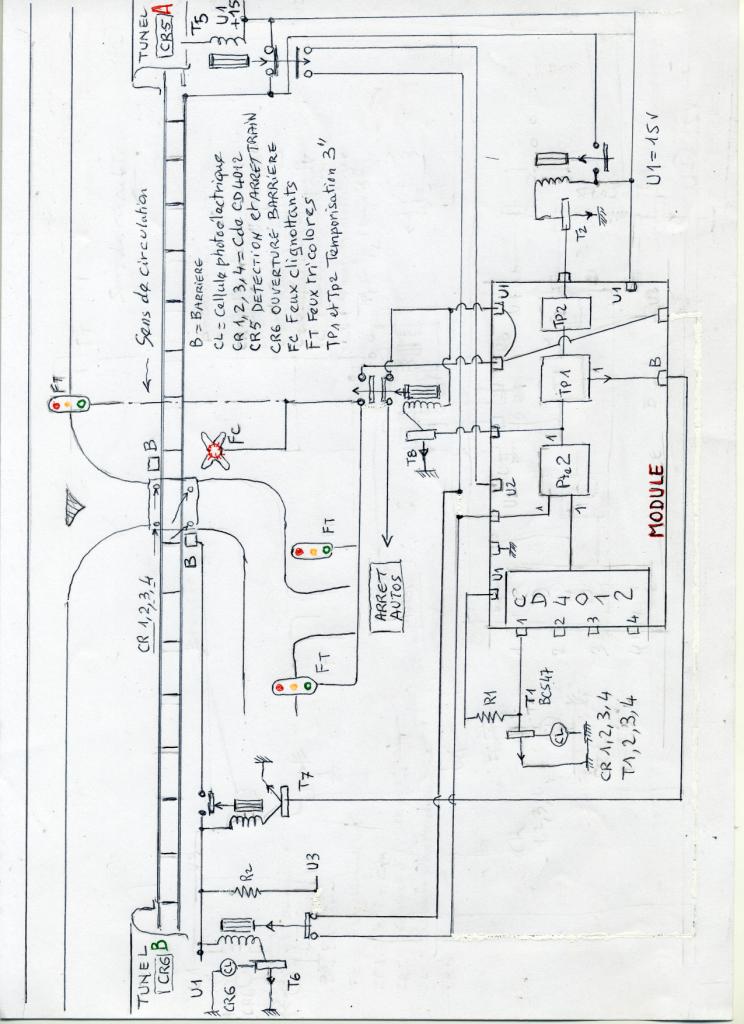 TUNEL
CR5 A
T5
U1
+15
Sens de circulation
B = BARRIERE
CL = Cellule photoelectrique
CR 1, 2, 3, 4 = Cde CD4012
CR5 DETECTION et ARRET TRAIN
CR6 OUVERTURE BARRIERE
FC Feux clignottants
FT Feux tricolores
TP1 et Tp2 Temporisation 3"
FT
B
FC
B
CR 1,2,3,4
FT
FT
ARRET
AUTOS
T8
T2
U1 = 15V
U1
U1
TP2
TP1
1
B
1
Pte2
1
1
U2
U1
MODULE
CD4012
1
2
3
4
R1
T1
BC547
CL
CR 1, 2, 3, 4
T 1, 2, 3, 4
T7
R2
U3
TUNEL
CR6 B
U1
CR6
CL
T6